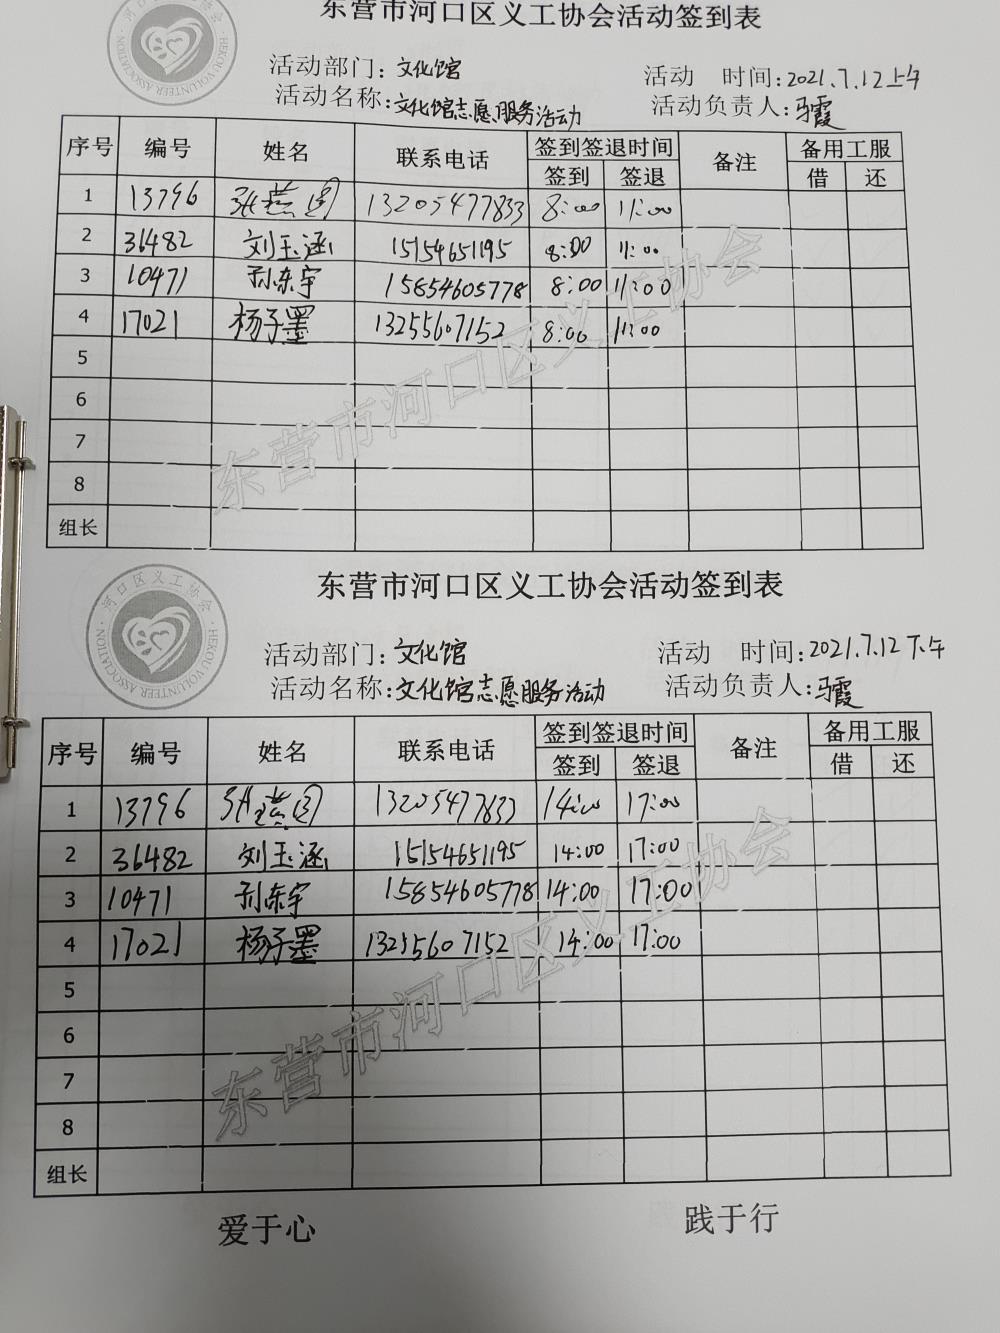 东营市河口区义工协会活动签到表
河口区义工协会
HEKOU VOLUNTEER ASSOCIATION
活动部门：文化馆 活动 时间：2021.7.12上午
活动名称：文化馆志愿服务活动 活动负责人：马霞
序号 编号 姓名 联系电话 签到签退时间 备注 备用工服
签到 签退 借 还
1 13796 张营圆 13205477833 8:00 11:00
2 36482 刘玉涵 15154651195 8:00 11:00
3 10471 孙东宇 15854605778 8:00 11:00
4 17021 杨子墨 13255607152 8:00 11:00
5
6
7
8
组长
东营市河口区义工协会
东营市河口区义工协会活动签到表
河口区义工协会
HEKOU VOLUNTEER ASSOCIATION
活动部门：文化馆 活动 时间：2021.7.12下午
活动名称：文化馆志愿服务活动 活动负责人：马霞
序号 编号 姓名 联系电话 签到签退时间 备注 备用工服
签到 签退 借 还
1 13796 张 圆 13205477833 14:00 17:00
2 36482 刘玉涵 15154651195 14:00 17:00
3 10471 孙东宇 15854605778 14:00 17:00
4 17021 杨子墨 13255607152 14:00 17:00
5
6
7
8
组长
东营市河口区义工协会
爱于心 践于行